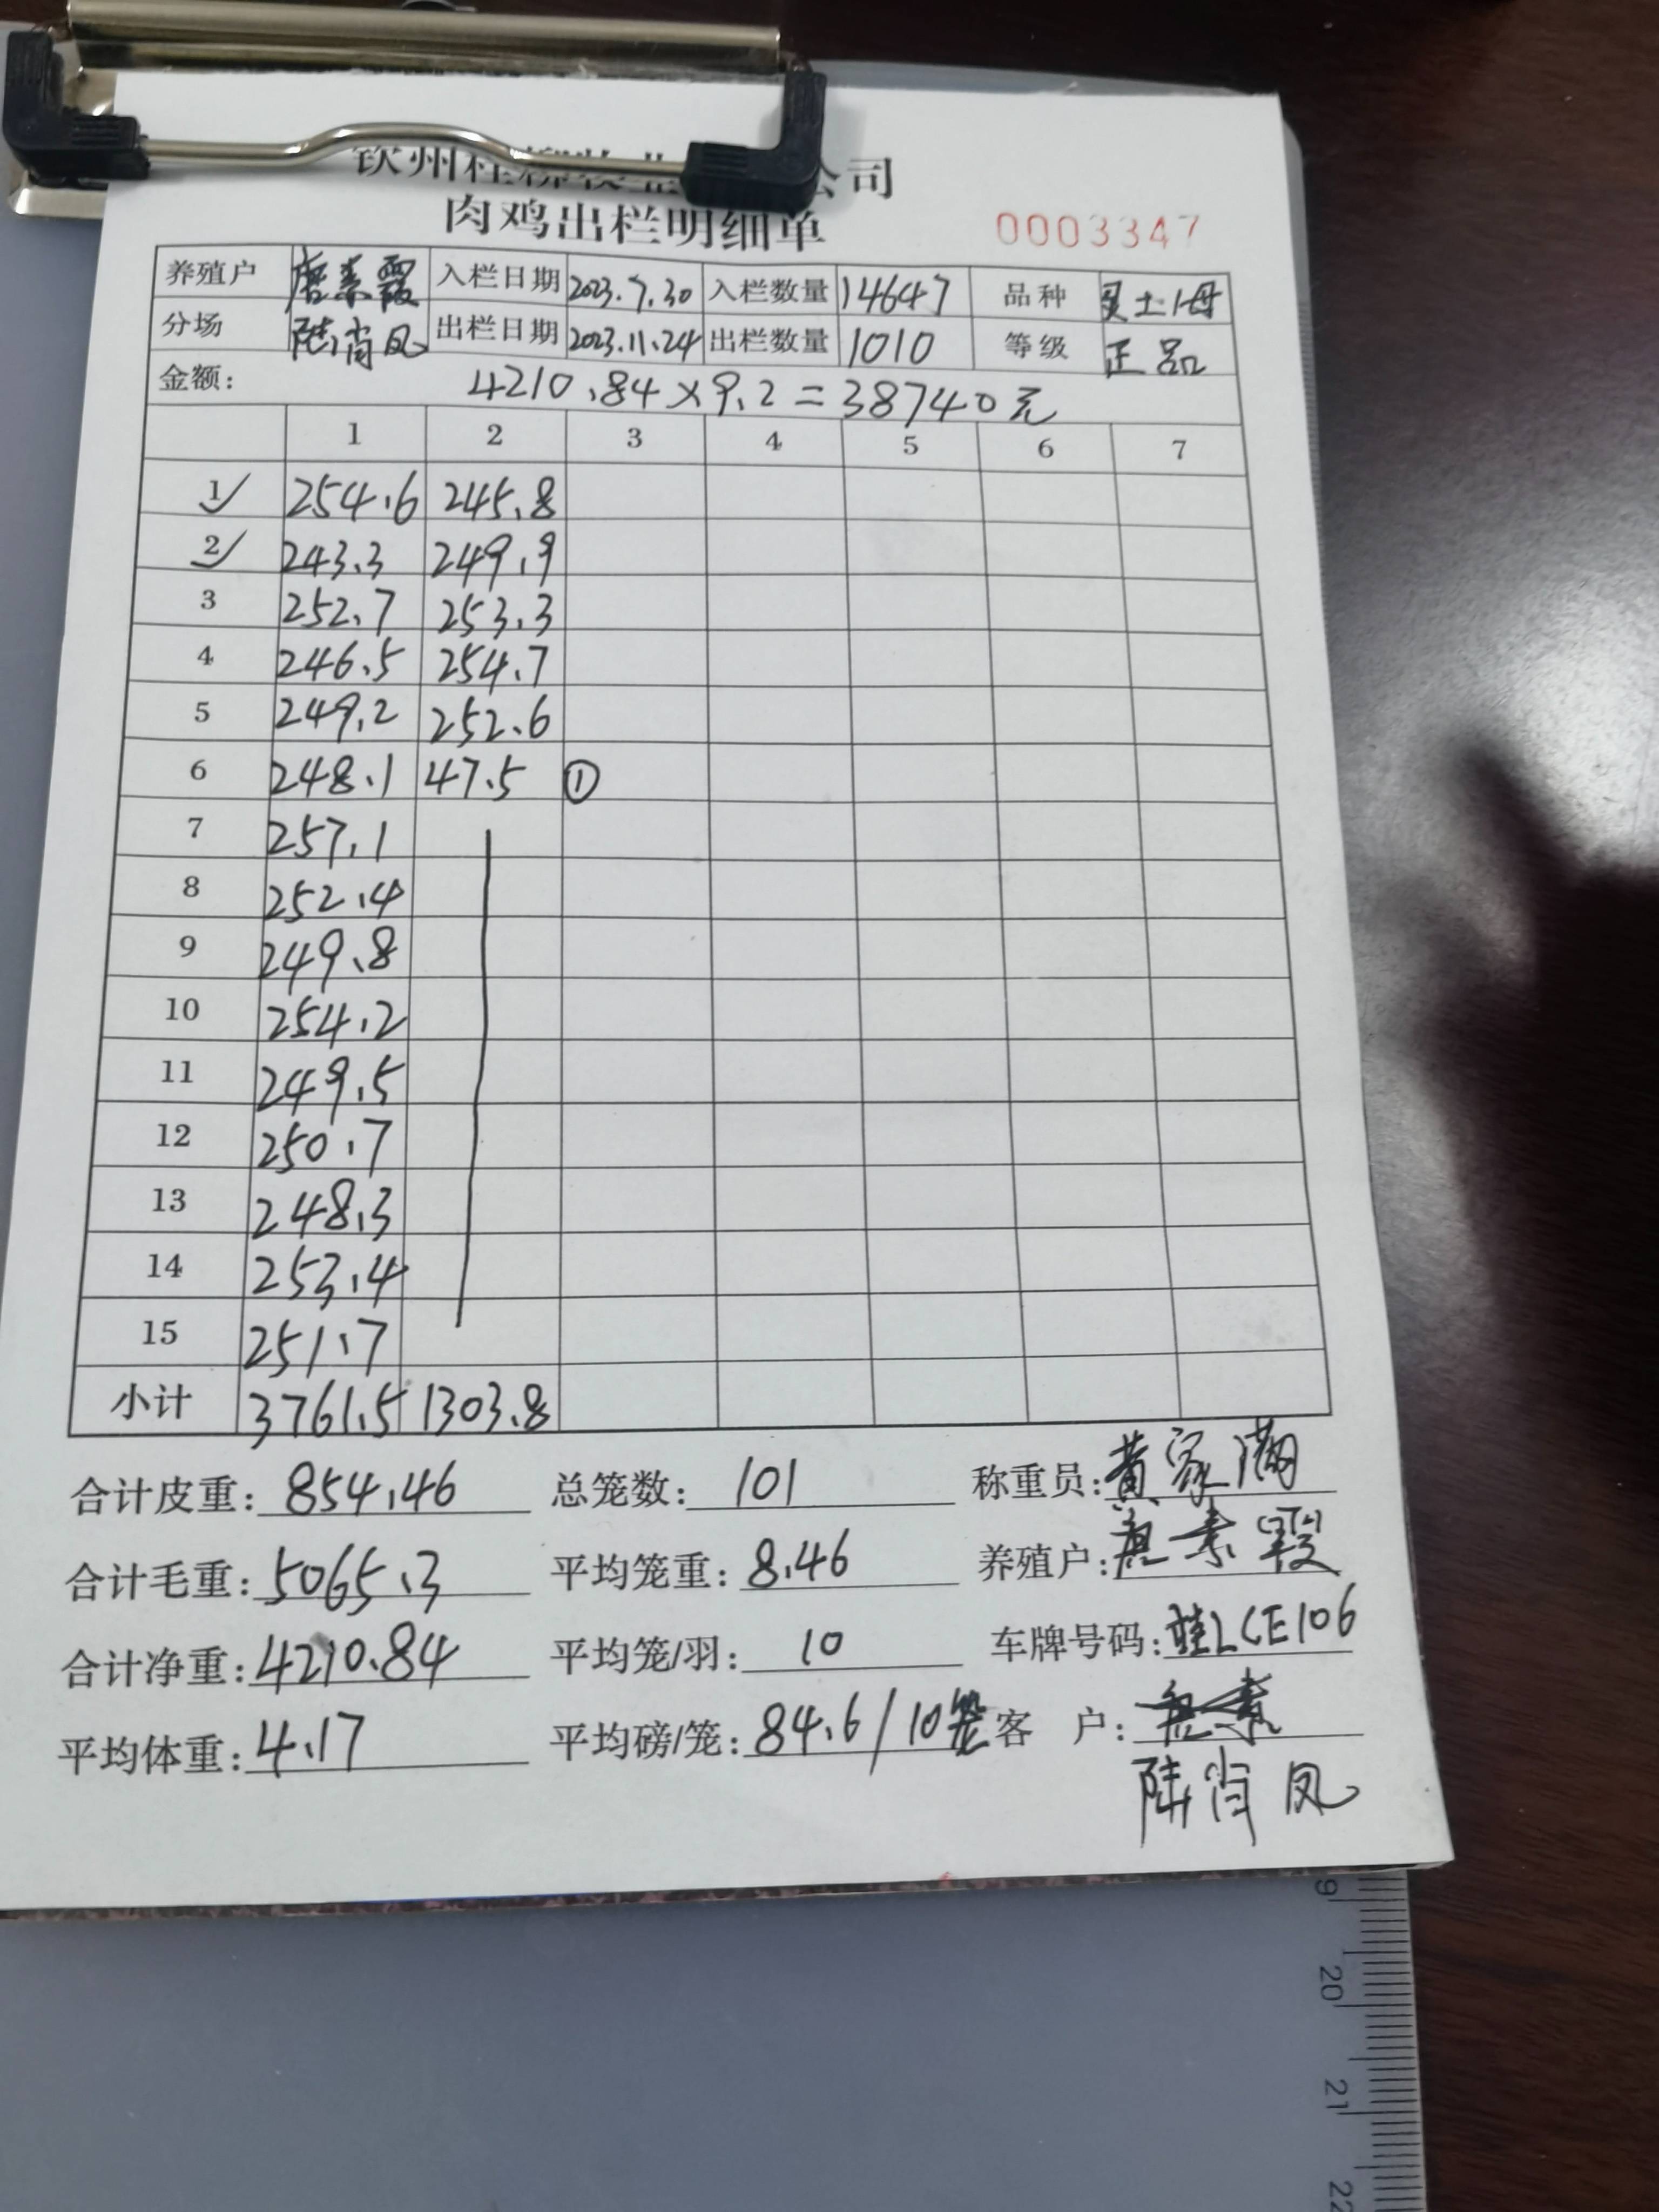 钦州桂柳牧业 公司
肉鸡出栏明细单 0003347
养殖户 唐素霞 入栏日期 2023.7.30 入栏数量 14647 品种 土1母
分场 陆肖凤 出栏日期 2023.11.24 出栏数量 1010 等级 正品
金额: 4210.84×9.2=38740元
1 2 3 4 5 6 7
1 254.6 245.8
2 243.3 249.9
3 252.7 253.3
4 246.5 254.7
5 249.2 252.6
6 248.1 47.5 ①
7 257.1
8 252.4
9 249.8
10 254.2
11 249.5
12 250.7
13 248.3
14 253.4
15 251.7
小计 3761.5 1303.8
合计皮重: 854.46 总笼数: 101 称重员: 黄家满
合计毛重: 5065.3 平均笼重: 8.46 养殖户: 素霞
合计净重: 4210.84 平均笼/羽: 10 车牌号码: 桂LCE106
平均体重: 4.17 平均磅/笼: 84.6/10笼 客 户:
陆肖凤
9
20
21
22